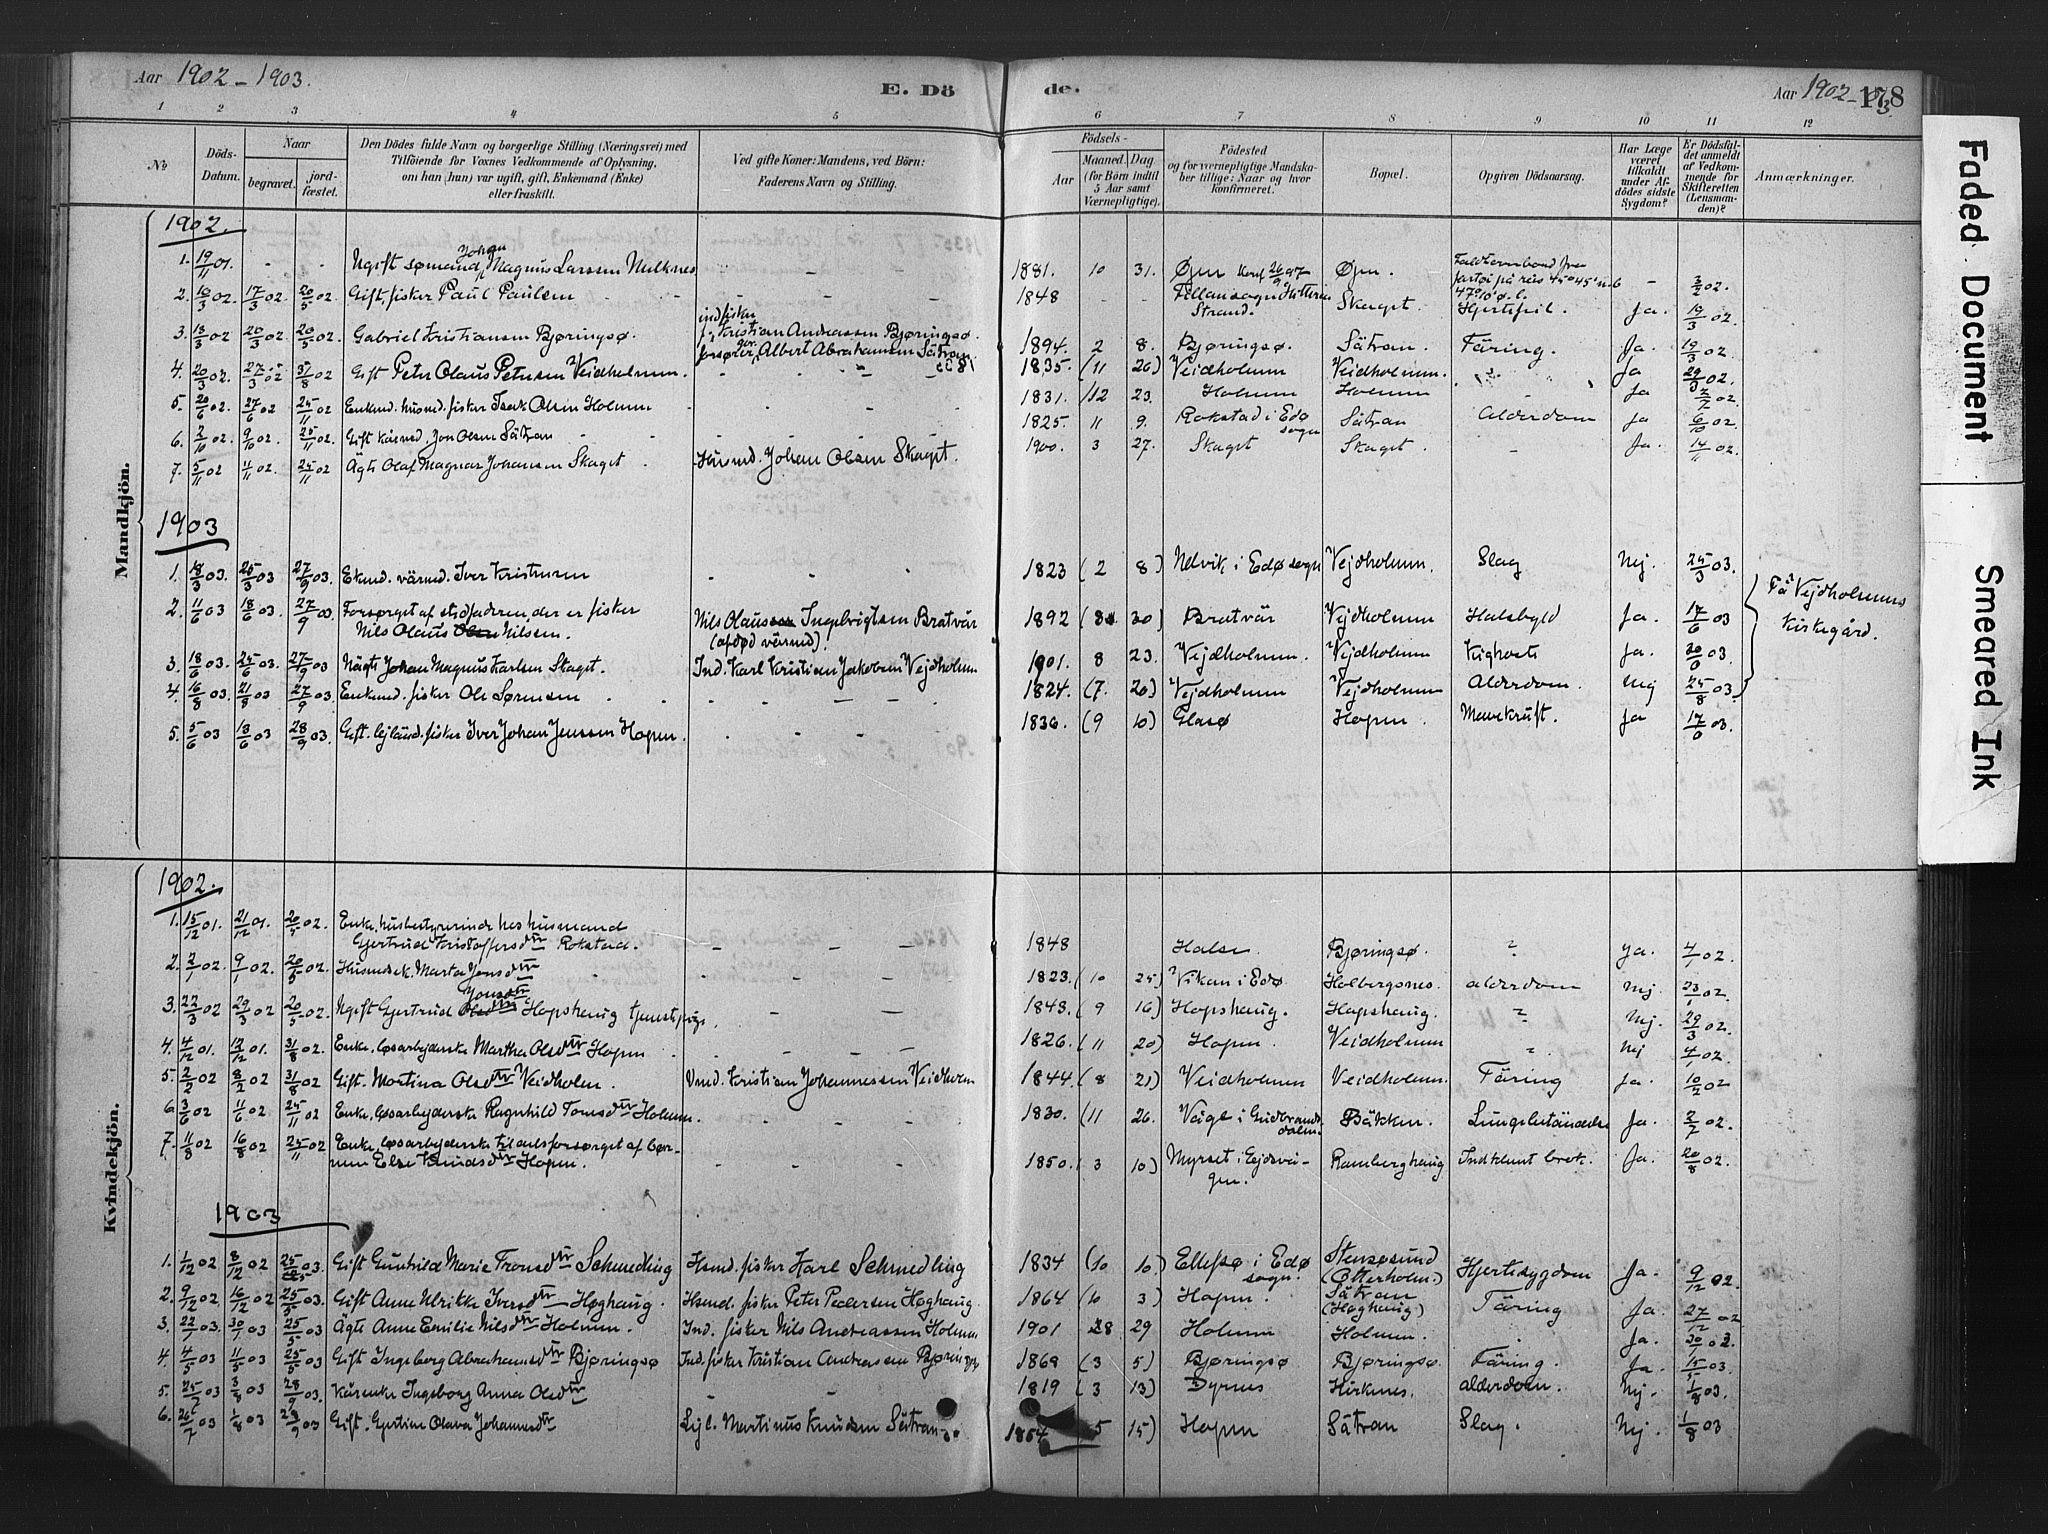 Aar 1902-1903.
E. Dö
de.
Aar 1902-03
178
1 2 3 4 5 6 7 8 9 10 11 12
No
Döds-Datum.
Naar
begravet.
jord-fæstet.
Den Dödes fulde Navn og borgerlige Stilling (Næringsvei) med
Tilföiende for Voxnes Vedkommende af Oplysning,
om han (hun) var ugift, gift, Enkemand (Enke)
eller fraskilt.
Ved gifte Koner: Mandens, ved Börn:
Faderens Navn og Stilling.
Födsels-
Aar
Maaned. Dag
(for Börn indtil
5 Aar samt
Værnepligtige).
Födested
og for værnepligtige Mandska-
ber tillige: Naar og hvor
konfirmeret.
Bopæl.
Opgiven Dödsaarsag.
Har Læge
været
tilkaldt
under Af-
dödes sidste
Sygdom?
Er Dödsfal-
det anmeldt
af Vedkom-
mende for
Skifteretten
(Lensman-
den)?
Anmærkninger.
Mandkjön.
1902.
1. 19/11 01. - - Ugift sømand Johan Magnus Larssen - - 1881. 10 31. Øjen Konf 26/9 97 Øjen. - 3/2 02.
2. 10/3 02. 17/3 02 20/5 02. Gift, fisker Paul Paulsen - 1848 - - Strand. Skaget. Hjertefeil. Ja. 19/3 02
3. 13/3 02 20/3 02 20/5 02. Gabriel Kristiansen Bjøringsø. Kristian Andreassen Bjøringsø. Albert Abrahamsen Sätran 1894. 2 8. Bjøringsø. Sätran. Täring. Ja. 19/3 02.
4. 20/3 02. 27/3 02 31/8 02 Gift Peter Olaus Petersen Veidholmen. - 1835. (11 26) Veidholmen Veidholmen. Ja 29/3 02.
5. 20/6 02. 27/6 02 25/11 02 Enkmd. husmd. fisker Isak Olsen Holmen - 1831. 12 23. Holmen Holmen - Ja 2/7 02.
6. 2/10 02. 9/10 02. 25/11 02. Gift kårmd. Jon Olsen Sätran - 1825. 11 9. Rokstad i Edø sogn Sätran Alderdom Ja 6/10 02.
7. 5/11 02 11/11 02. 25/11 02 Ägte Olaf Magnar Johansen Skaget Husmd. Johan Olsen Skaget. 1900. 3 27. Skaget Skaget. - Ja. 14/11 02.
1903
1. 18/3 03. 25/3 03 27/9 03. Ekmd. värmd. Iver Kristensen - 1823 (2 8) Nelvik i Edø sogn Vejdholmen. Slag Nej. 25/3 03.
2. 11/6 03 18/6 03. 27/9 03 Forsørget af stedfaderen, der er fisker
Nils Olaus Nilsen. Nils Olaus Ingebrigtsen Bratvär
(afdød värmd). 1892 (8 30) Bratvär Vejdholmen Halsbyld Ja. 17/6 03
På Vejdholmens
kirkegård.
3. 18/6 03. 25/6 03. 27/9 03 Uägte Johan Magnus Karlsen Skaget. Ind. Karl Kristian Jakobsen Vejdholmen 1901. 8 23. Vejdholmen. Vejdholmen Kighoste Ja. 03.
4. 16/8 03. 21/8 03 27/9 03 Enkmd. fisker Ole Sørensen - 1824. (7. 20) Vejdholmen Vejdholmen Alderdom. Nej 25/8 03.
5. 5/6 03 18/6 03 28/9 03. Gift. lejländ. fisker Iver Johan Jenssen Hopen. - 1836. (9 10) Glasø Hopen. Mavekräft. Ja 03.
Kvindekjön.
1902.
1. 15/12 01. 21/12 01. 20/5 02. Enke, husbestyrerinde hos husmand
Gertrud Kristoffersdtr Rokstad. - 1848 Halse Bjøringsø. " Ja. 4/1 02.
2. 2/1 02. 9/1 02. 20/5 02. Husmdsk. Marta Jonsdtr - 1823. (10 25) Vikan i Edø Holbergsnes. alderdom Nej. 23/1 02.
3. 22/3 02 29/3 02 20/5 02. Ugift Gjertrud Jonsdtr Hopshaug tjenestpige. - 1843. (9 16) Hopshaug. Hopshaug. " Nej. 29/3 02.
4. 4/12 01. 12/12 01. 31/8 02. Enke, løsarbejderske Martha Olsdtr Hopen - 1826. (11 20) Hopen. Veidholmen " Nej 4/1 02.
5. 2/2 02 8/2 02 31/8 02 Gift. Martina Olsdtr Veidholm. Kristian Johannessen Veidholm 1844. (8 21) Veidholmen Veidholmen. Täring Ja. 10/2 02
6. 3/6 02 11/6 02 25/11 02 Enke, løsarbejderske Ragnhild Tomsdtr Holmen. - 1830. (11 26. i Gudbrands-
dalen. Bäkken. Lungebetändelse Ja. 2/7 02.
7. 11/8 02 16/8 02 25/11 02 Enke løsarbejderske tildels forsørget af bør-
nene Else Knudsdtr Hopen. - 1850. 3 10) Myrset i Ejdsvå-
gen. Ramberghaug Indklemt brok. Ja. 20/8 02.
1903
1. 1/12 02 8/12 02 25/5 03. Gift Gunhild Marie Tronsdtr Schmedling Hsmd. fisker Karl Schmedling 1834 (10 10. Ellefsø i Edø
sogn. Stensøsund
(Otterholm.) Hjertesygdom Ja. 9/12 02.
2. 9/12 02. 16/12 02 25/5 03. Gift Anne Ulrikke Iversdtr Høghaug. Hsmd. fisker Peter Pedersen Høghaug. 1864 (10 3) Hopen. Sätran
(Høghaug) Täring Ja. 27/12 02
3. 22/1 03. 30/1 03. 25/5 03 Ägte Anne Emilie Nilsdtr Holmen. Ind. fisker Nils Andreassen Holmen 1901 29 Holmen Holmen. Ja. 03.
4. 4/5 03 11/5 03 25/5 03 Gift Ingeborg Abrahamsdtr Bjøringsø Ind. fisker Kristian Andreassen 1869 (3 5) Bjøringsø Bjøringsø. Täring. Ja. 15/5 03.
5. 25/7 03 3/8 03 28/9 03. Kårenke Ingeborg Anna Olsdtr - 1819 (3 13) Dyrnes Hirknes. alderdom. Nej. 1/8 03.
6. 26/7 03 1/8 03 28/9 03 Gift. Gjertine Olava Johannesdtr Lejl. Martinus Knudsen Sätran. 1854 5 15) Hopen Sätran Slag. Nej 1/8 03
Faded Document
Smeared Ink